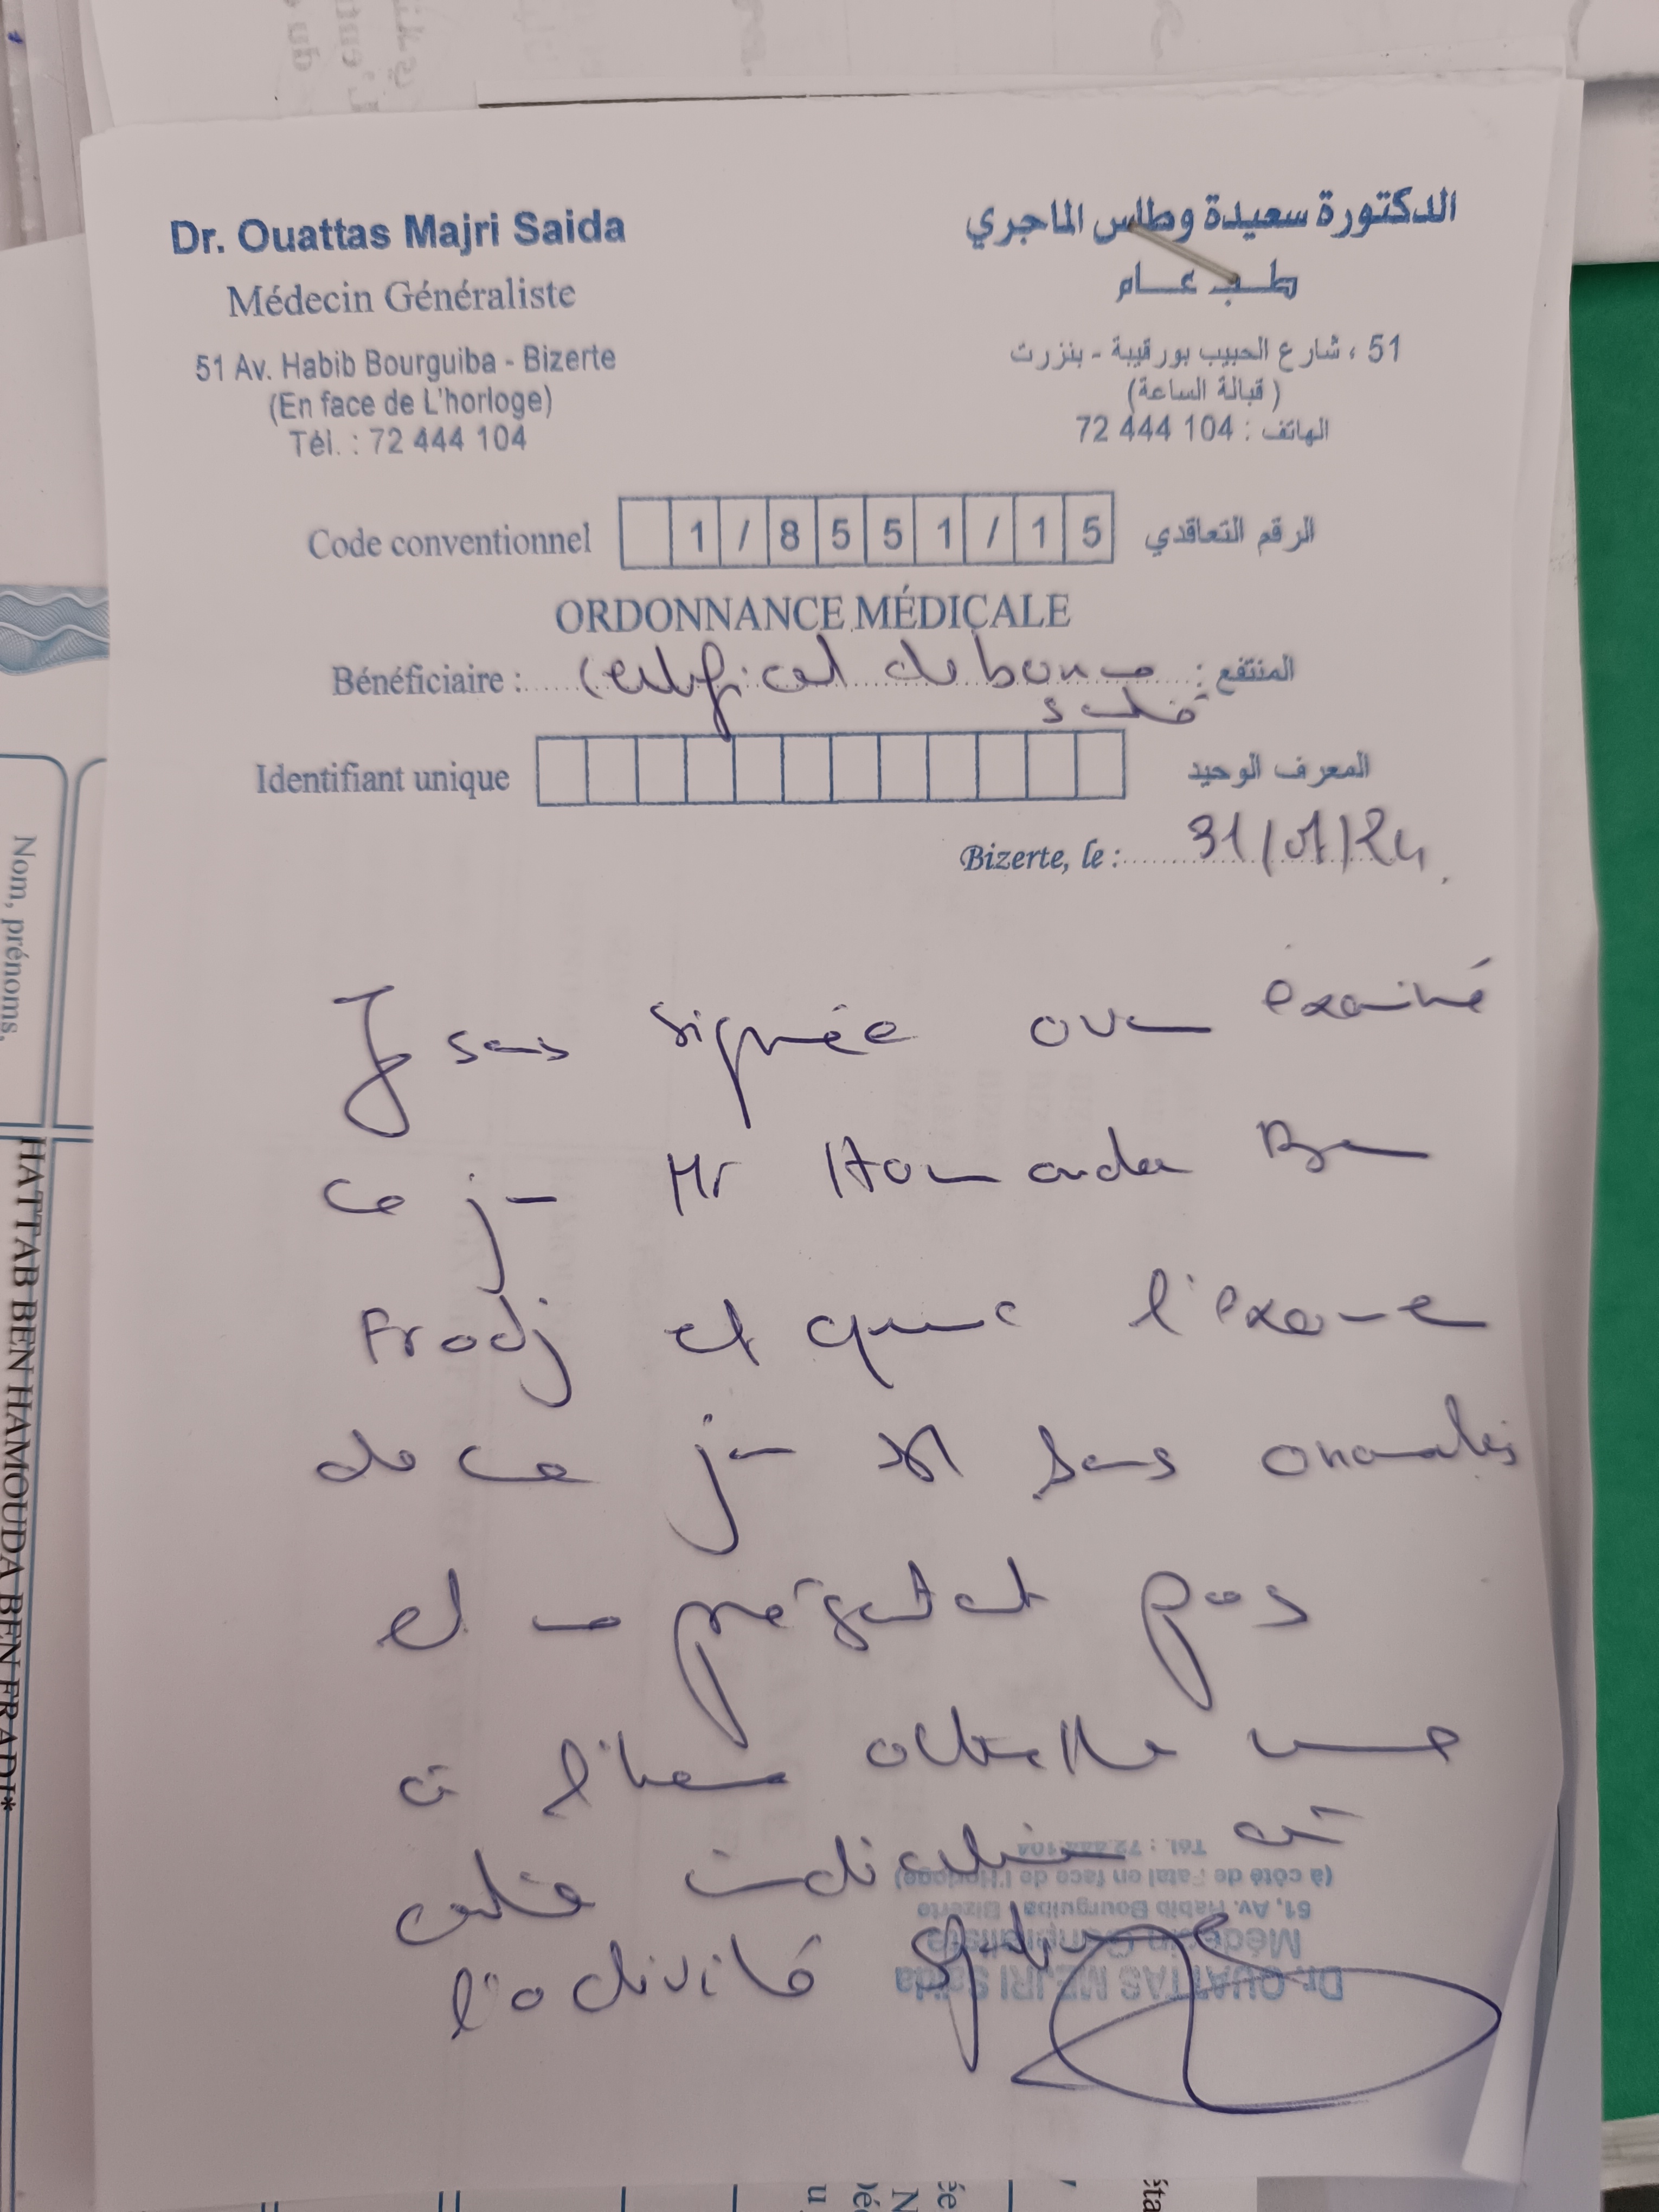 Dr. Ouattas Majri Saida
Médecin Généraliste
51 Av. Habib Bourguiba - Bizerte
(En face de L'horloge)
Tél. : 72 444 104
الدكتورة سعيدة وطاس الماجري
طب عام
51 ، شارع الحبيب بورقيبة - بنزرت
(قبالة الساعة)
الهاتف : 104 444 72
Code conventionnel 1/8551/15 الرقم التعاقدي
ORDONNANCE MÉDICALE
Bénéficiaire : Certificat de bonne المنتفع :
santé
Identifiant unique المعرف الوحيد
Bizerte, le : 31/01/24
Je sous signée avoir examiné
ce jour Mr Hamouda Ben
Fradj et que l'examen
de ce jour est sans anomalies
et ne présentant pas
à l'heure actuelle une
contre indication à
l'activité
Dr. OUATTAS MEJRI Saida
Médecin Généraliste
51, Av. Habib Bourguiba Bizerte
(à côté de en face de l'Horloge)
Tél. : 72 444 104
Nom, prénoms,
HATTAB BEN HAMOUDA BEN FRADJ*